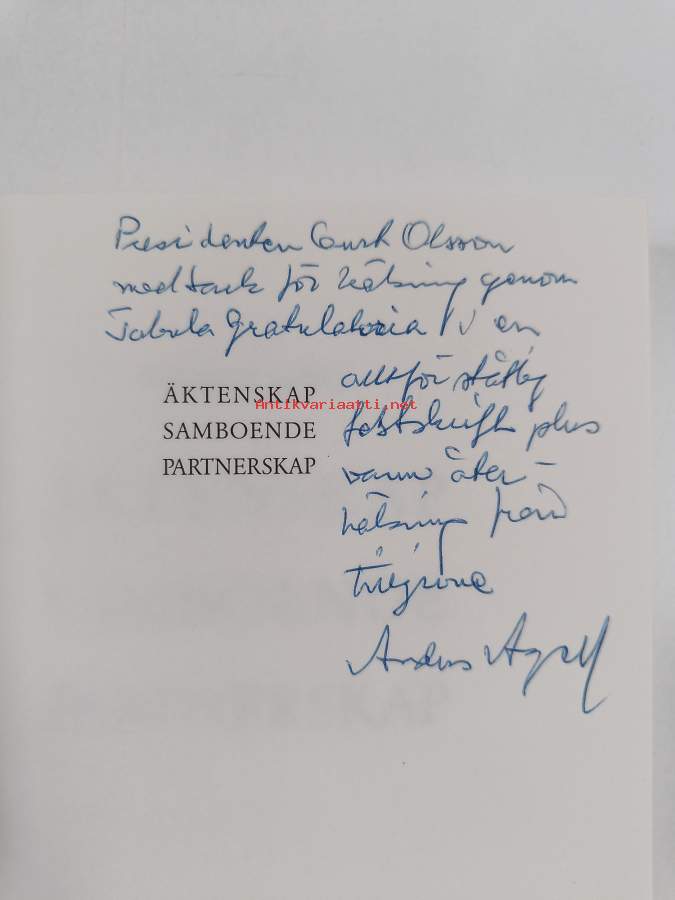 Presidenten Curt Olsson
med tack för hälsning genom
Tabula Gratulatoria i en
ÄKTENSKAP
alltför ståtlig
Antikvariaatti.net
SAMBOENDE
festskrift plus
PARTNERSKAP
varm åter-
hälsning från
Anders Agell